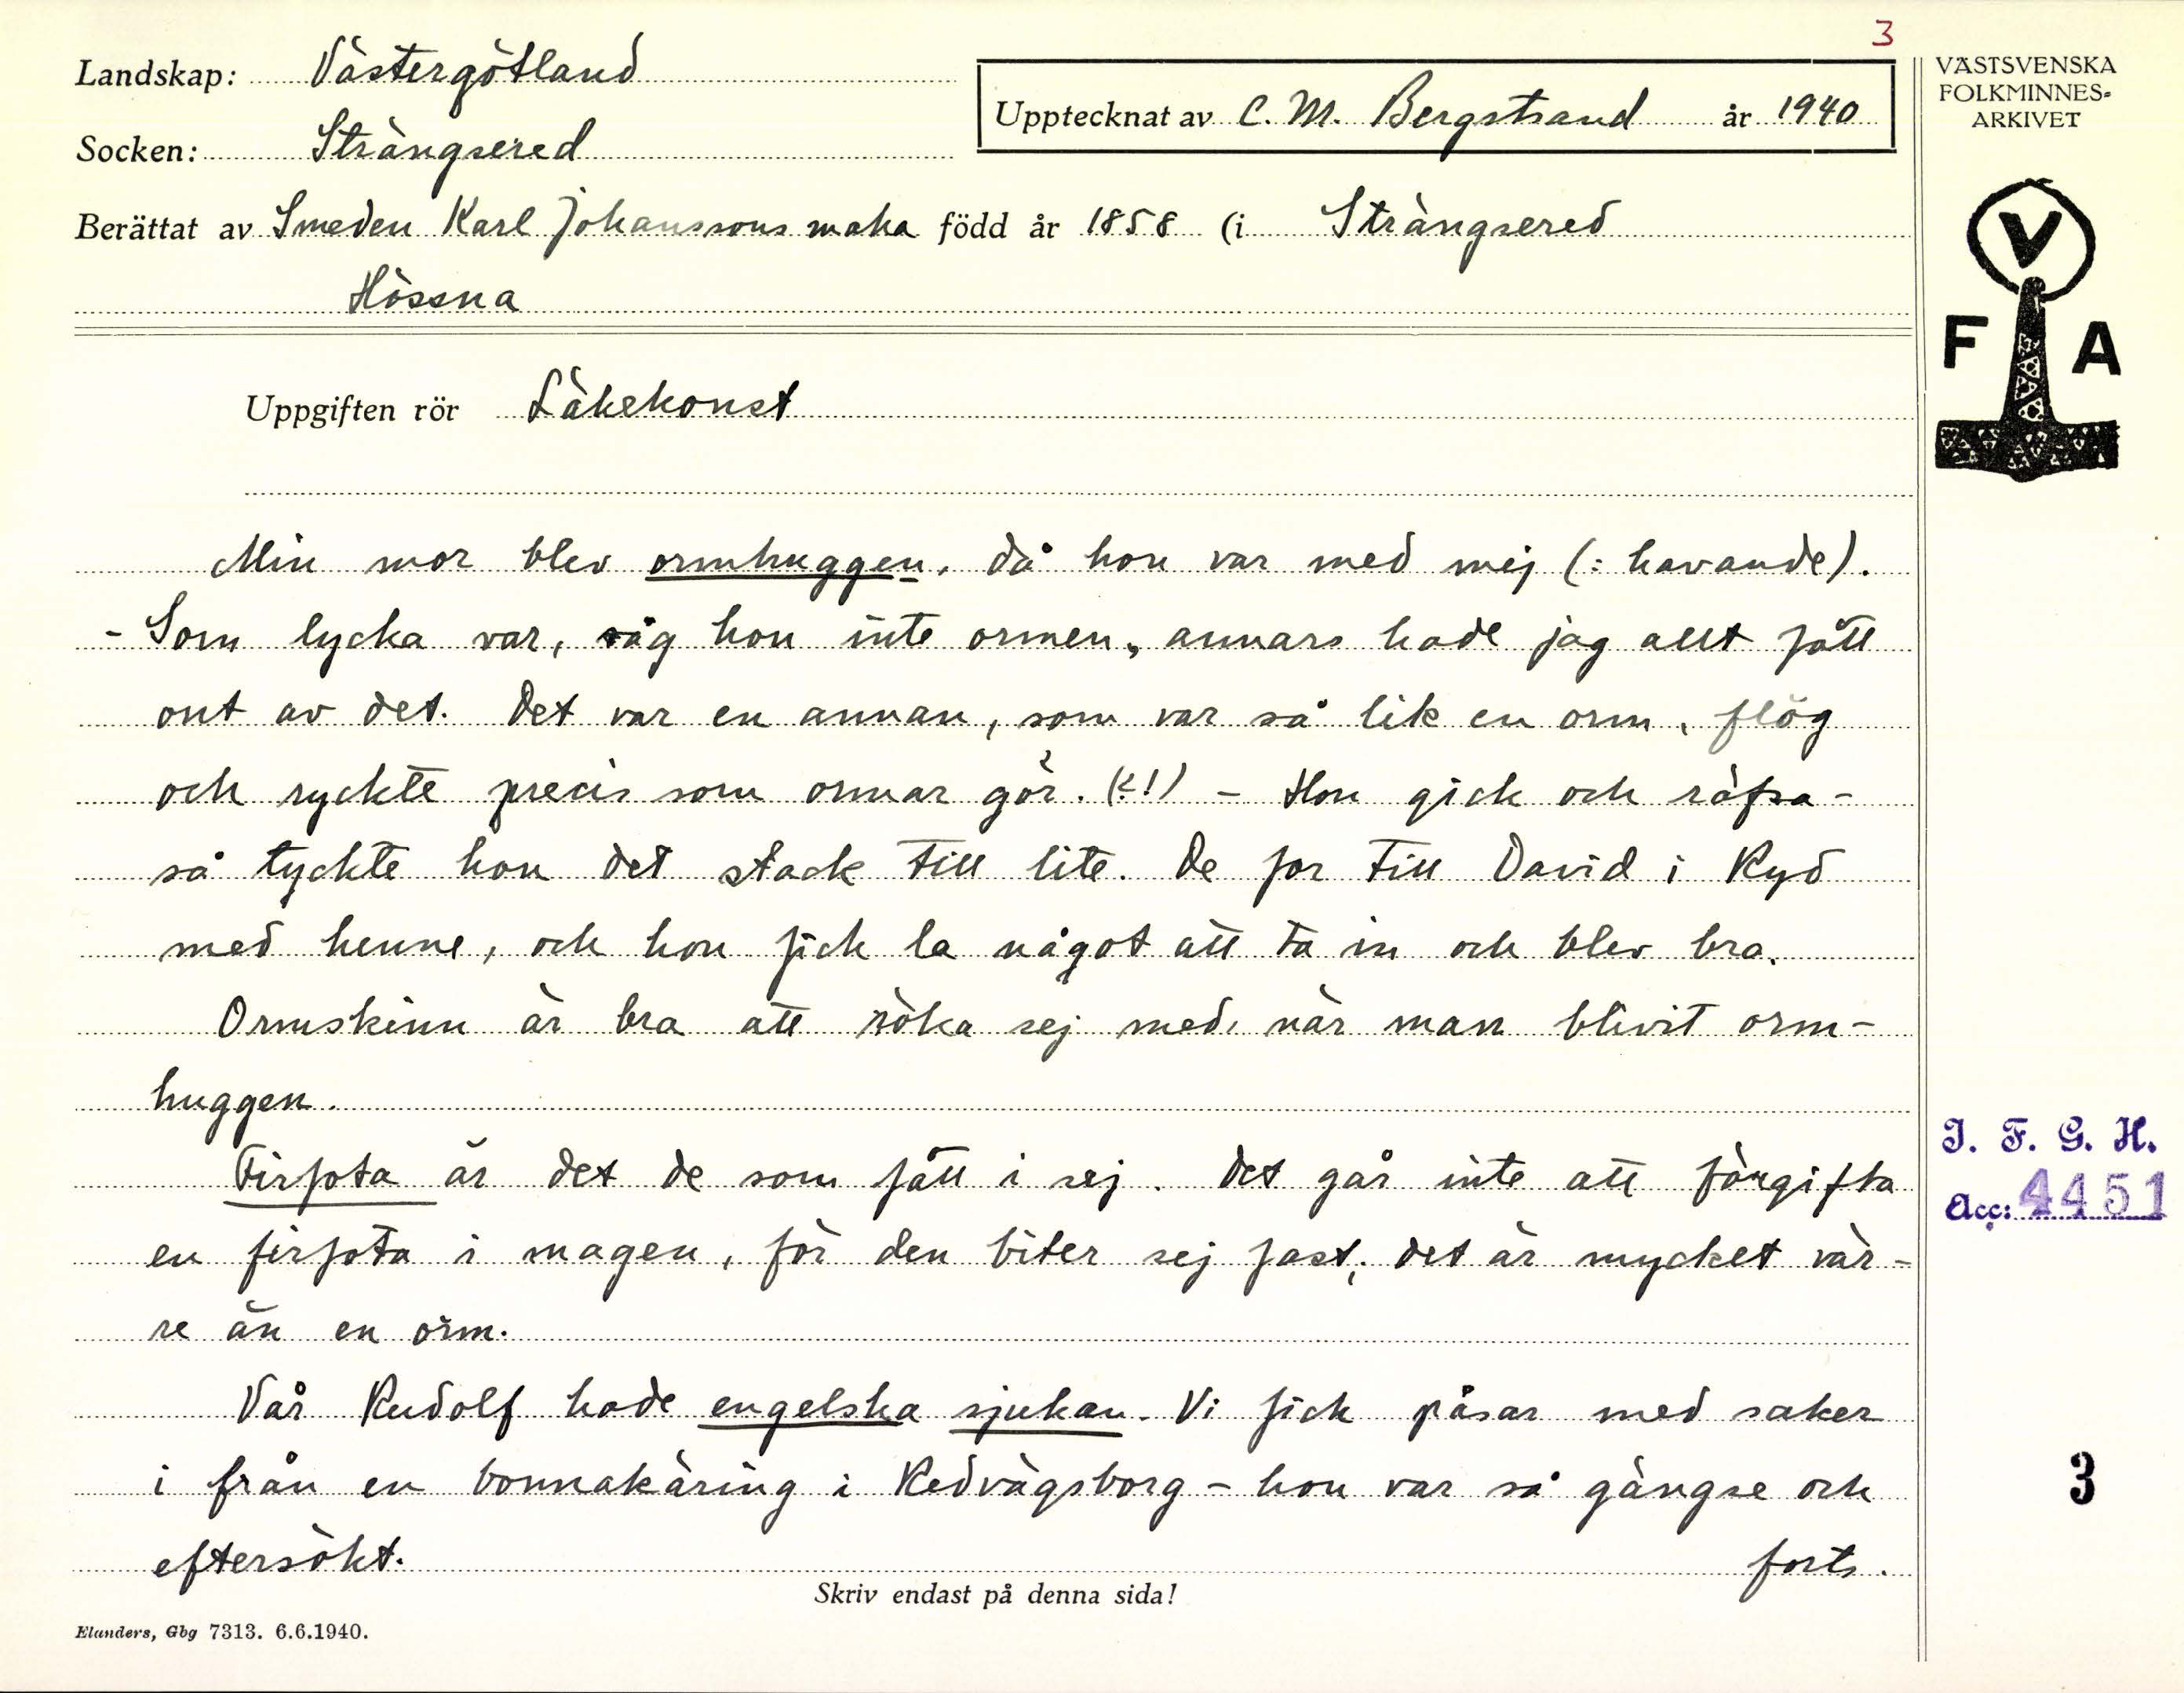 3
Landskap: Västergötland
Upptecknat av C. M. Bergstrand år 1940
Socken: Strängsered
Berättat av Smeden Karl Johanssons maka född år 1858 (i Strängsered
Hössna
VÄSTSVENSKA
FOLKMINNES-
ARKIVET
V
F A
Uppgiften rör Läkekonst
Min mor blev ormhuggen, då hon var med mej (: havande).
- Som lycka var, såg hon inte ormen, annars hade jag allt fått
ont av det. Det var en annan, som var så lik en orm, flög
och ryckte precis som ormar gör. (?!) - Hon gick och räfsa-
så tyckte hon det stack till lite. De for till David i Ryd
med henne, och hon fick la något att ta in och blev bra.
Ormskinn är bra att röka sej med, när man blivit orm-
huggen.
Firfota är det de som fått i sej. Det går inte att förgifta
en firfota i magen, för den biter sej fast; det är mycket vär-
re än en orm.
Vår Rudolf hade engelska sjukan. Vi fick påsar med saker
i från en bonnakäring i Redvägsborg - hon var så gängse och
eftersökt.
forts.
J. F. G. H.
Acc: 4451
3
Skriv endast på denna sida!
Elanders, Gbg 7313. 6.6.1940.